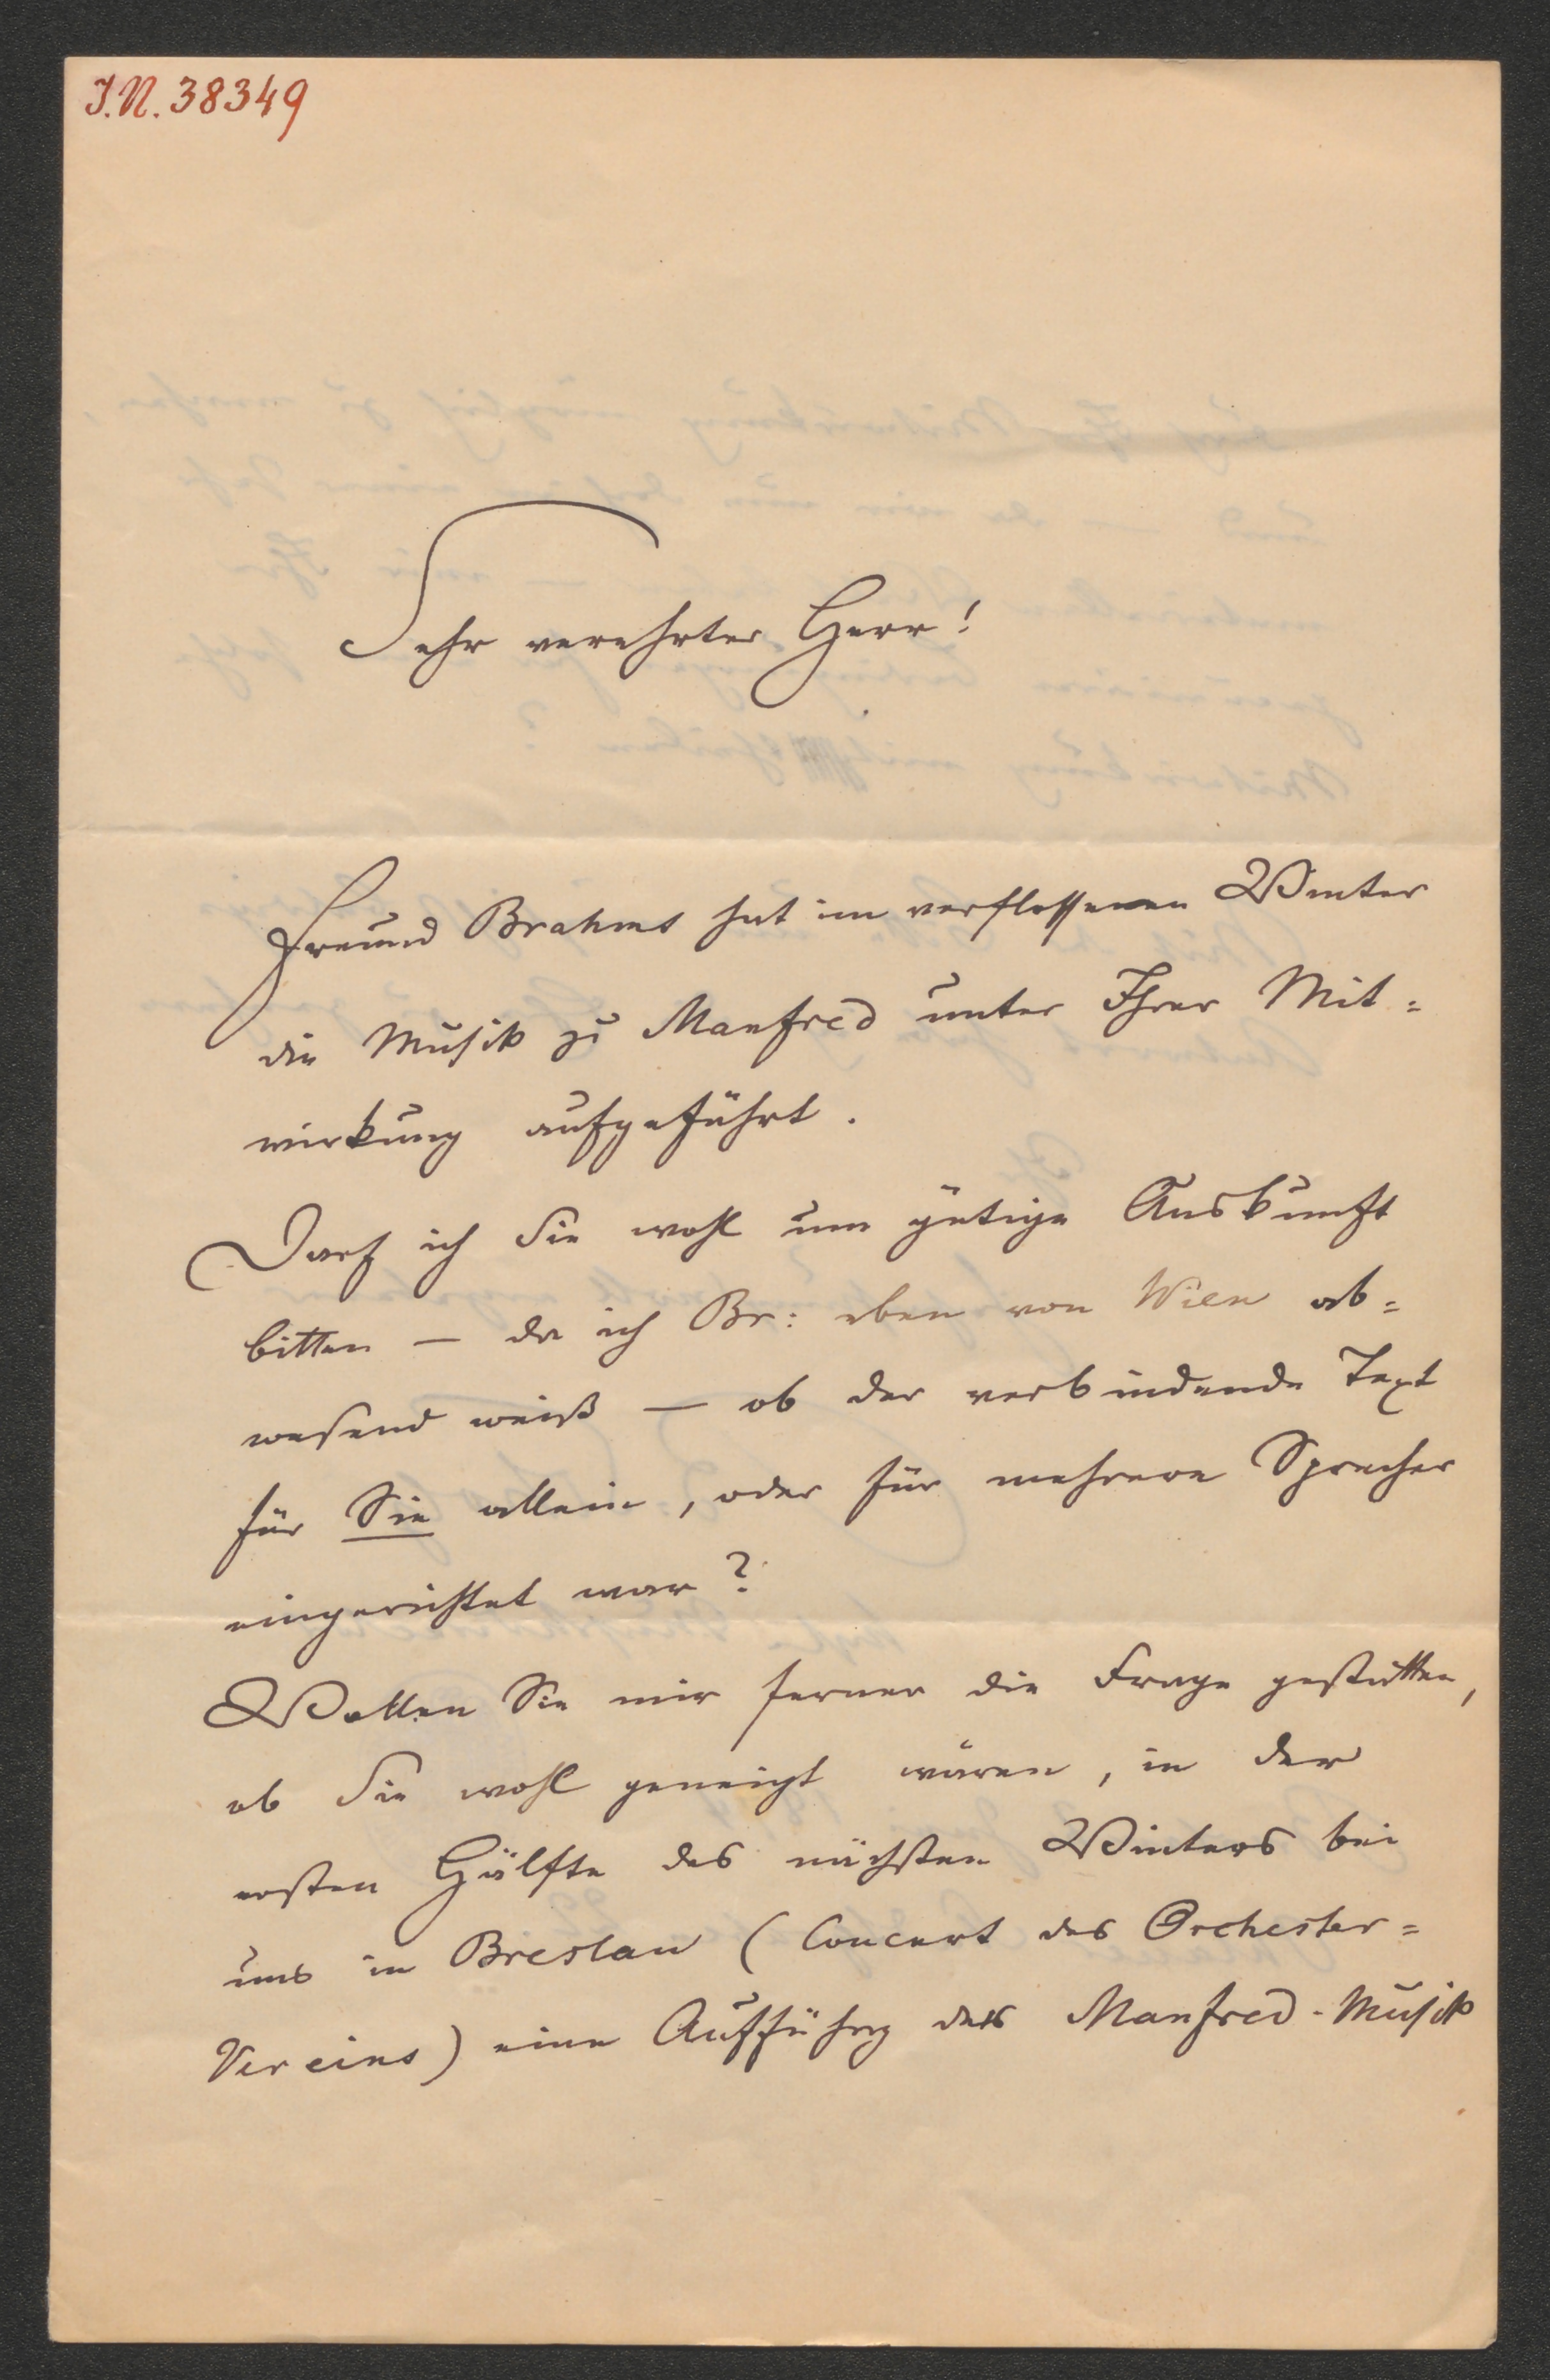 I.N. 38349
Sehr verehrter Herr!
Freund Brahms hat im verflossenen Winter
die Musik zu Manfred unter Ihrer Mit=
wirkung aufgeführt.
Darf ich Sie wohl um gütige Auskunft
bitten — da ich Br: eben von Wien ab=
wesend weiß — ob der verbindende Text
für Sie allein, oder für mehrere Sprecher
eingerichtet war?
Wollen Sie mir ferner die Frage gestatten,
ob Sie wohl geneigt wären, in der
ersten Hälfte des nächsten Winters bei
uns in Breslau (Concert des Orchester=
Vereins) eine Aufführg der Manfred-Musik